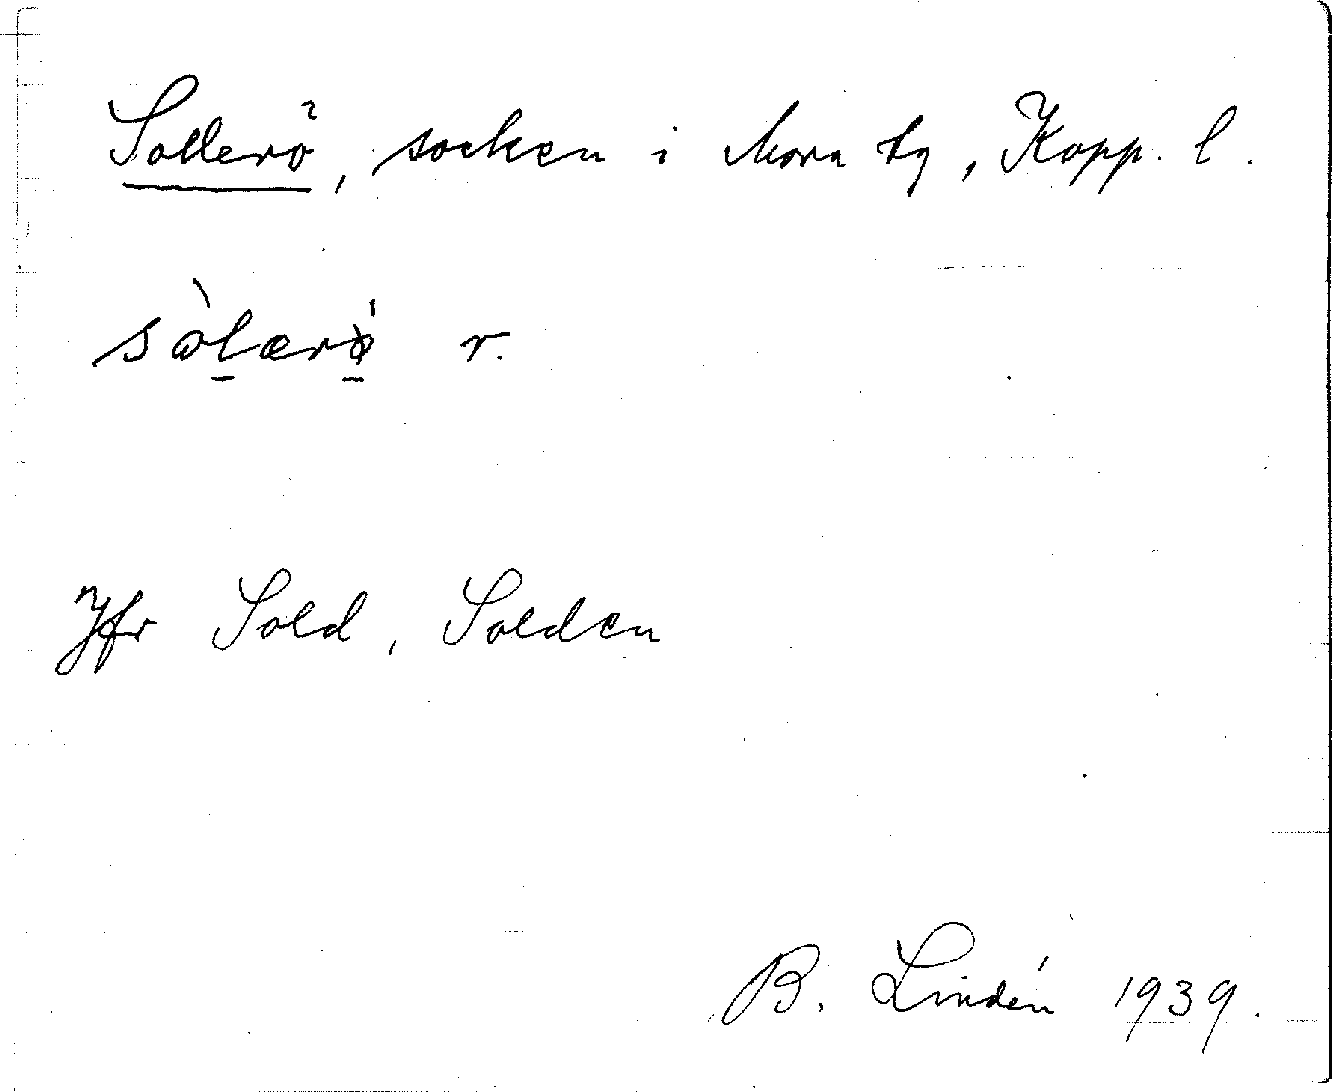 Sollerö, socken i Mora tg, Kopp. l.
sòlærø̀ r.
Jfr Sold, Solden
B. Lindén 1939.